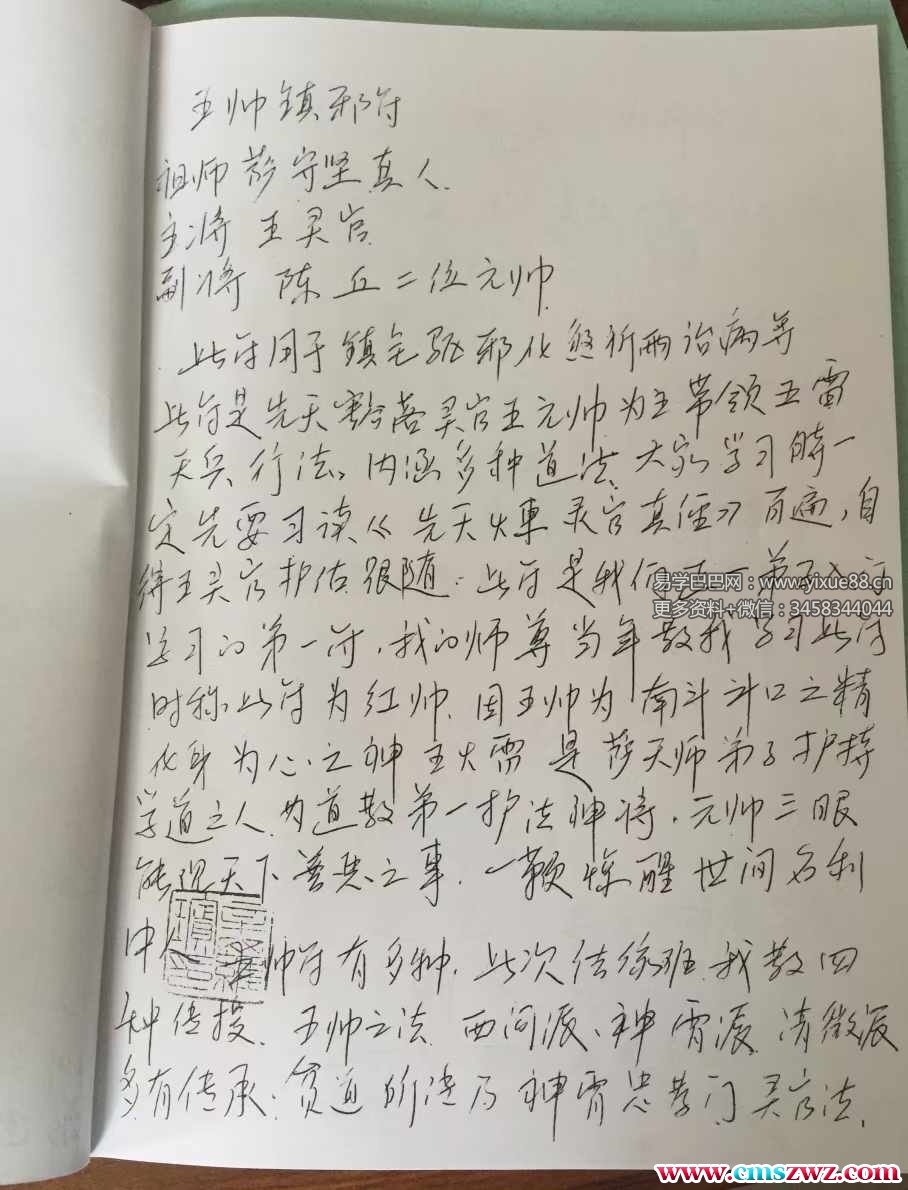 王帅镇邪符
祖师 萨守坚真人
主将 王灵官
副将 陈 丘二位元帅
此符用于镇宅驱邪化煞祈雨治病等
此符是先天豁落灵官王元帅为主带领五雷
天兵行法。内涵多种道法 大家学习时一
定先要习读《先天火車灵官真经》百遍,自
得王灵官护佑跟随。此符是我们
学习的第一符,我的师尊当年教我学习此符
时称此符为红帅,因王帅为南斗斗口之精
化身为心之神主火雷 是萨天师弟子护持
学道之人,为道教第一护法神将,元帅三眼
能观天下善恶之事,一鞭惊醒世间名利
中人 王帅符有多种,此次传 班 我教四
种传授,王帅之法 西河派、神霄派、清微派
多有传承。贫道所传乃神霄忠孝门灵官法,
易学巴巴网:www.yixue88.cn
更多资料+微信:3458344044
www.cmszwz.com